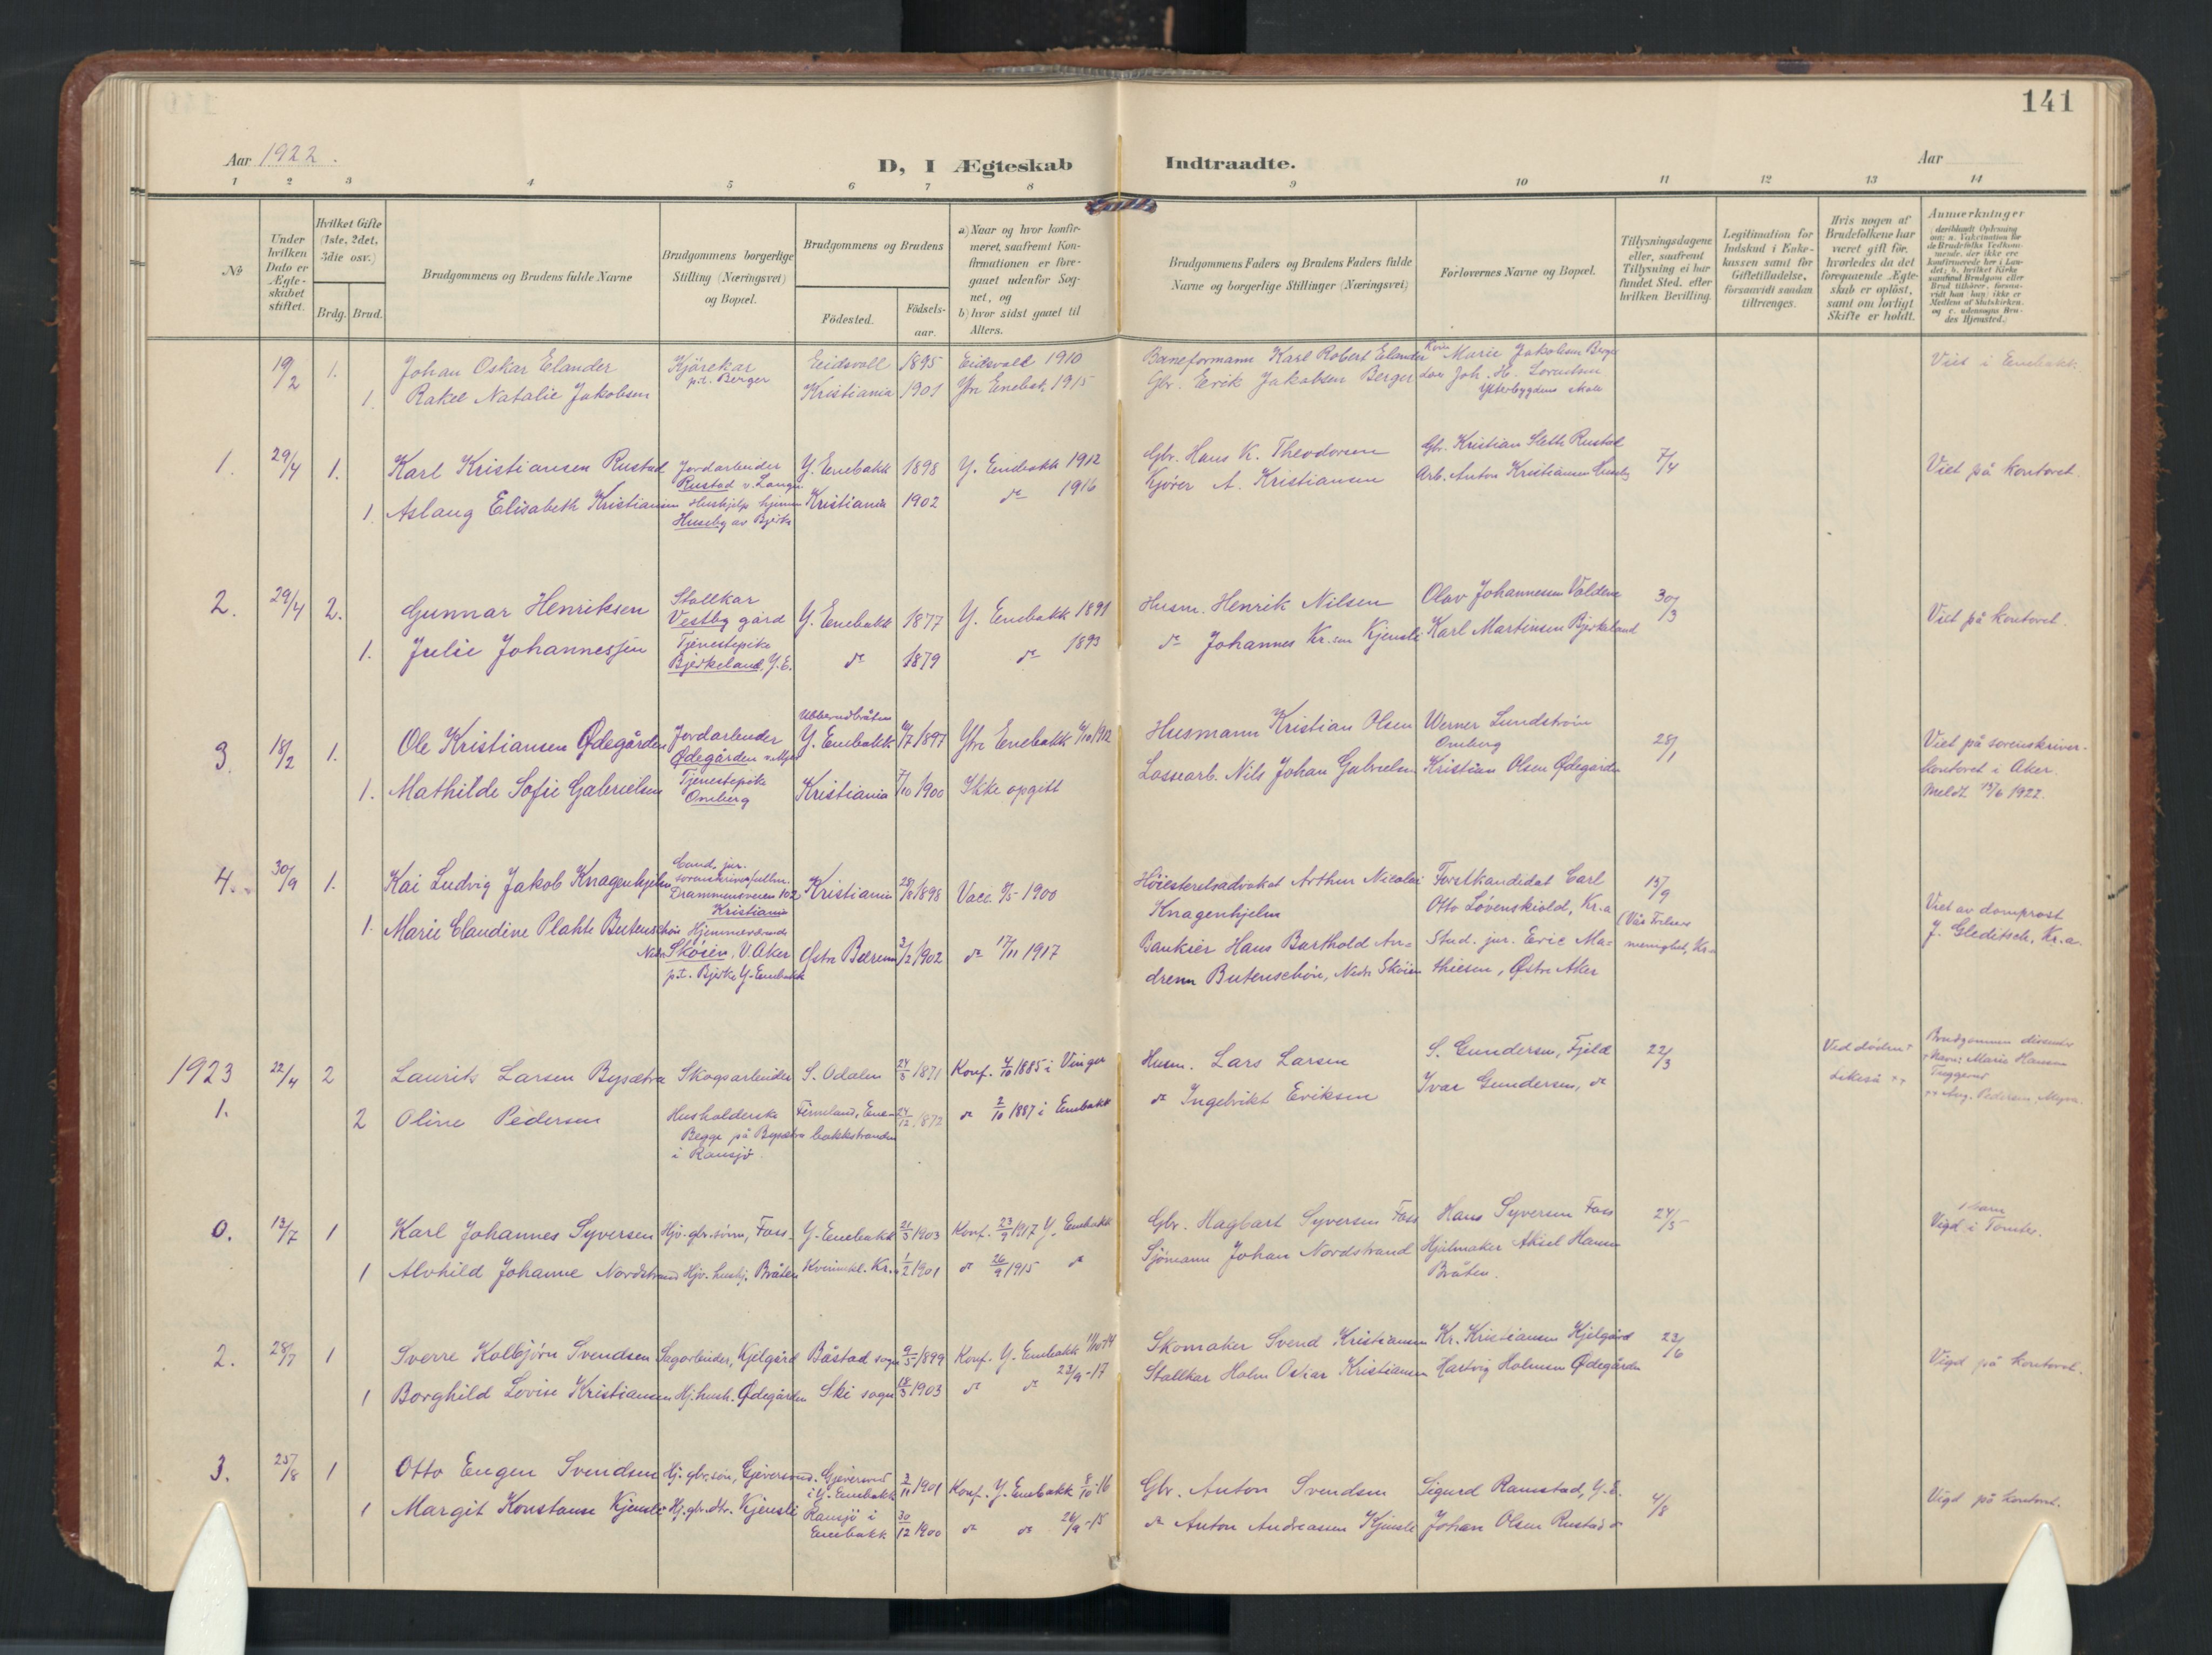 141
Aar 1922.
D, I Ægteskab Indtraadte.
Aar
1 2 3 4 5 6 7 8 9 10 11 12 13 14
No
Under hvilken Dato er Ægteskabet stiftet.
Hvilket Gifte (1ste, 2det, 3die osv.)
Brdg. Brud.
Brudgommens og Brudens fulde Navne
Brudgommens borgerlige Stilling (Næringsvei) og Bopæl.
Brudgommens og Brudens
Födested.
Födselsaar.
a) Naar og hvor konfirmeret, saafremt Konfirmationen er foregaaet udenfor Sognet, og
b) hvor sidst gaaet til Alters.
Brudgommens Faders og Brudens Faders fulde Navne og borgerlige Stillinger (Næringsvei)
Forlovernes Navne og Bopæl.
Tillysningsdagene eller, saafremt Tillysning ei har fundet Sted, efter hvilken Bevilling.
Legitimation for Indskud i Enkekassen samt for Giftetilladelse, forsaavidt saadan tiltrænges.
Hvis nogen af Brudefolkene har været gift för, hvorledes da det foregaaende Ægteskab er oplöst, samt om lovligt Skifte er holdt.
Anmærkninger
19/2 1. Johan Oskar Elander Kjörekar p.t. Berger Eidsvoll 1895 Eidsvoll 1910 Baneformann Karl Robert Elander Marie Jakobsen Berger Viet i Enebakk.
1. Rakel Natalie Jakobsen Kristiania 1901 Ytre Enebak. 1915 Gbr. Erik Jakobsen Berger Joh. H. Ytterbygdens skole
1. 29/4 1. Karl Kristiansen Rustad Jordarbeider Rustad v. Langen Y. Enebakk 1898 Y. Enebakk 1912 Gbr. Hans K. Theodorsen Gbr. Kristian Sleth Rustad 7/4 Viet på kontoret.
1. Aslaug Elisabeth Kristiansen Hushjelp hjemme Huseby av Bjerke Kristiania 1902 do 1916 Kjörer A. Kristiansen Arb. Anton Kristiansen Huseby
2. 29/4 2. Gunnar Henriksen Stallkar Vestby gård Y. Enebakk 1877 Y. Enebakk 1891 Husm. Henrik Nilsen Olav Johannesen 30/3 Viet på kontoret.
1. Julie Johannessen Tjenestepike Bjerkeland, Y.E. do 1879 do 1893 do Johannes Kr.sen Kjensli Karl Martinsen Bjerkeland
3. 18/2 1. Ole Kristiansen Ødegården Jordarbeider Ødegården v. Mjær Y. Enebakk 1897 Ytre Enebakk 1912 Husmann Kristian Olsen Werner Lundström Omberg 28/1 Viet på sorenskriverkontoret i Aker. Meldt 1922.
1. Mathilde Sofie Gabrielsen Tjenestepike Omberg Kristiania 7/10 1900 Ikke opgitt Lossearb. Nils Johan Gabrielsen Kristian Olsen Ødegården
4. 30/9 1. Kai Ludvig Jakob Knagenhjelm Cand. jur. sorenskriverfullm. Drammensveien 102, Kristiania Kristiania 1898 Vacc. 1900 Höiesteretsadvokat Arthur Nicolai Knagenhjelm Forstkandidat Carl Otto Løvenskiold, Kr.a 13/9 (Vår Frelsers menighet, Kr.a Viet av domprost J. Gleditsch, Kr.a.
1. Marie Claudine Plahte Butenschön Hjemmeværende Nedre Skøien, V. Aker p.t. Bjerke Y. Enebakk Østre Bærum 3/2 1902 do 17/11 1917 Bankier Hans Barthold Andresen Butenschön, Nedre Skøien Stud. jur. Eric Mathiesen, Østre Aker
1923
1. 22/4 2 Laurits Larsen Bysætra Skogsarbeider S. Odalen 24/5 1871 Konf. 4/10 1885 i Vinger Husm. Lars Larsen S. Gundersen, Fjeld 22/3 Ved döden + Brudgommen Marie Hansen
2 Oline Pedersen Husholderske Begge på Bysætra i Ransjö Enebakkstranden 24/12 1872 do 2/10 1887 i Enebakk do Ingebrikt Eriksen Ivar Gundersen, do Likeså ++ ++ Aug. Pedersen,
0. 13/7 1 Karl Johannes Syversen Hjv. gbr. sönn, Foss. Y. Enebakk 21/5 1903 Konf. 23/9 1917 Y. Enebakk Gbr. Hagbart Syversen Foss Hans Syversen Foss 24/5 1 barn Vigd i Tomter.
1 Alvhild Johanne Nordstrand Hjv. hushj. Bråten 1/2 1901 do 26/9 1915 do Sjömann Johan Nordstrand Hjulmaker Aksel Hansen Bråten.
2. 28/7 1 Sverre Kolbjörn Svendsen Sagarbeider, Kjilgård Båstad sogn 9/5 1899 Konf. Y. Enebakk 11/10 14 Skomaker Svend Kristiansen Kr. Kristiansen Kjilgård 23/6 Vigd på kontoret.
1 Borghild Lovise Kristiansen Hj. hush. Ødegården Ski sogn 18/3 1903 do do 23/9-17 Stallkar Holm Oskar Kristiansen Hartvig Holmsen Ødegården
3. 25/8 1 Otto Eugen Svendsen Hj. gbr. sön, Gjeversrud. Gjeversrud i Y. Enebakk 3/11 1901 Konf. Y. Enebakk 8/10-16 Gbr. Anton Svendsen Sigurd Ramstad, Y.E. 4/8 Vigd på kontoret.
1 Margit Konstanse Kjensli Hj. gbr. dtr. Kjensli Ransjö i Enebakk 30/12 1900 do do 26/9-15 do Anton Andreassen Kjensli Johan Olsen Rustad do